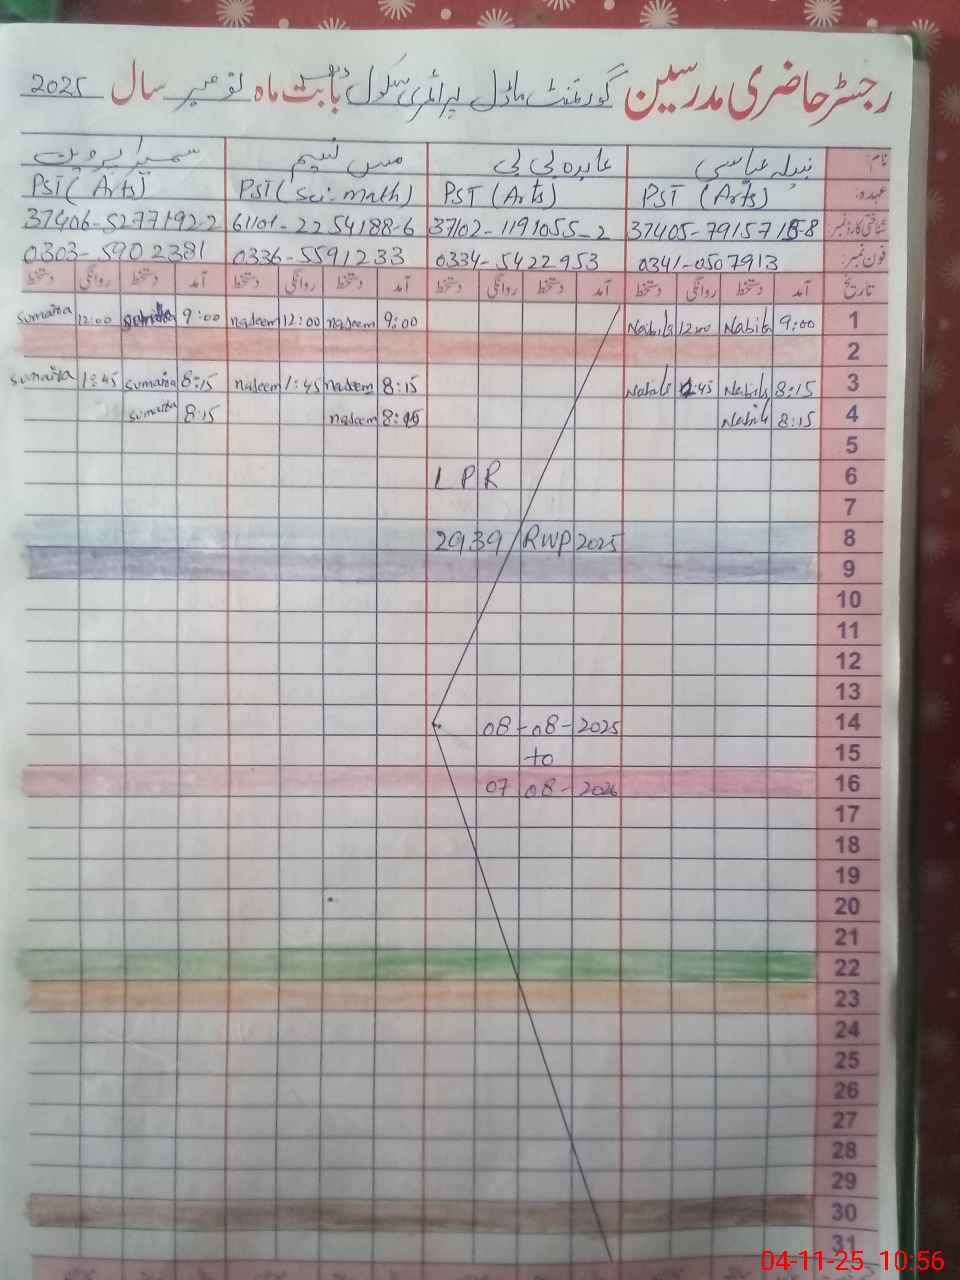 رجسٹر حاضری مدرسین گورنمنٹ ماڈل پرائمری سکول بابت ماہ نومبر سال 2025
نام: نبیلہ عباسی عابدہ بی بی مس نسیم سمیرا پروین
عہدہ: PST (Arts) PST (Arts) PST (Sci: math) PST (Arts)
شناختی کارڈ نمبر: 37102-1191055-2 61101-2254188-6 37406-5277192-2
فون نمبر: 0341-0507913 0334-5422953 0336-5591233 0303-5902381
تاریخ آمد دستخط روانگی دستخط آمد دستخط روانگی دستخط آمد دستخط روانگی دستخط آمد دستخط روانگی دستخط
1 9:00 Nabila 12:00 Nabila 9:00 nadeem 12:00 nadeem 9:00 12:00 Sumaira
2
3 8:15 Nabila 1:45 Nabila 8:15 nadeem 1:45 nadeem 8:15 sumaira 1:45 sumaira
4 8:15 Nabila 8:15 nadeem 8:15 sumaira
5
6 LPR
7
8 2939/RWP/2025
9
10
11
12
13
14 08-08-2025
15 to
16 07-08-2026
17
18
19
20
21
22
23
24
25
26
27
28
29
30
31
04-11-25 10:56